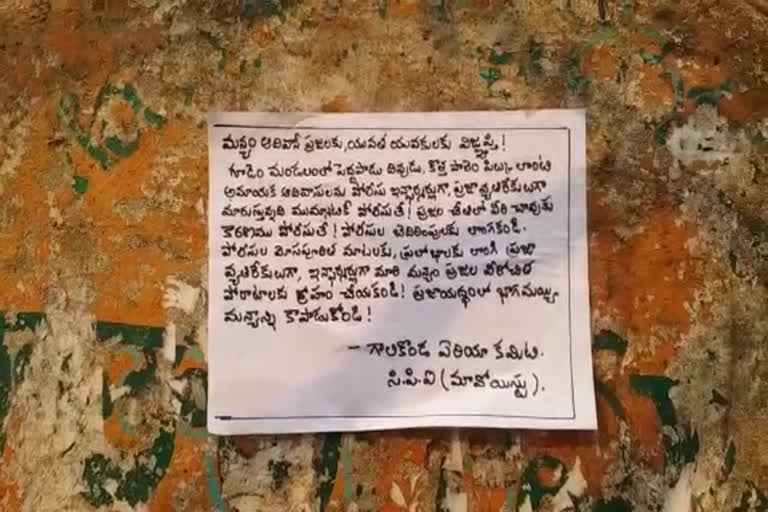 మన్యం ఆదివాసీ ప్రజలకు, యువతీ యువకులకు విజ్ఞప్తి!
గూడెం మండలంలో పెద్దపాడు దివుడు, కొత్త పాలెం పిల్కు లాంటి
అమాయక ఆదివాసులను పోలీసు ఇన్ఫార్మర్లుగా, ప్రజావ్యతిరేకులుగా
మారుస్తున్నది ముమ్మాటికీ పోలీసులే! ప్రజల చేతిలో వీరి చావుకు
కారణము పోలీసులే! పోలీసుల బెదిరింపులకు లొంగకండి.
పోలీసుల మోసపూరిత మాటలకు, ప్రలోభాలకు లొంగి ప్రజా
వ్యతిరేకులుగా, ఇన్ఫార్మర్లుగా మారి మన్యం ప్రజల వీరోచిత
పోరాటాలకు ద్రోహం చేయకండి! ప్రజాయుద్ధంలో భాగమయ్యి
మన్యాన్ని కాపాడుకోండి!
- గాలికొండ ఏరియా కమిటి.
సి.పి.ఐ (మావోయిస్టు).